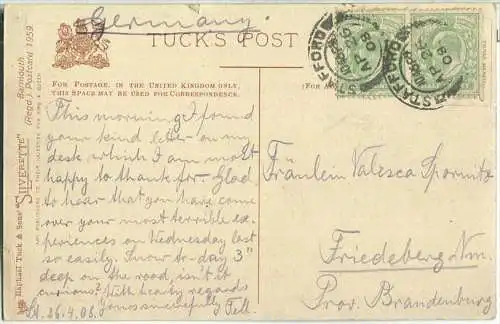 Germany
TUCK'S POST
FOR POSTAGE, IN THE UNITED KINGDOM ONLY,
THIS SPACE MAY BE USED FOR CORRESPONDENCE.
(FOR
Raphael Tuck & Sons' "SILVERETTE" Barmouth
(Regd.) Postcard 1959
STAFFORD
AP 26
08
STAFFORD
AP 26
08
This morning I found
your kind letter on my
desk which I am most
happy to thank for. Glad
to hear that you have come
over your most terrible ex-
periences on Wednesday last
so easily. Snow to-day 3"
deep on the road, isn't it
curious? With hearty regards
Yours sincerely Tell.
St. 26.4.08.
Fräulein Valesca Spornitz
Friedeberg Nm.
Prov. Brandenburg